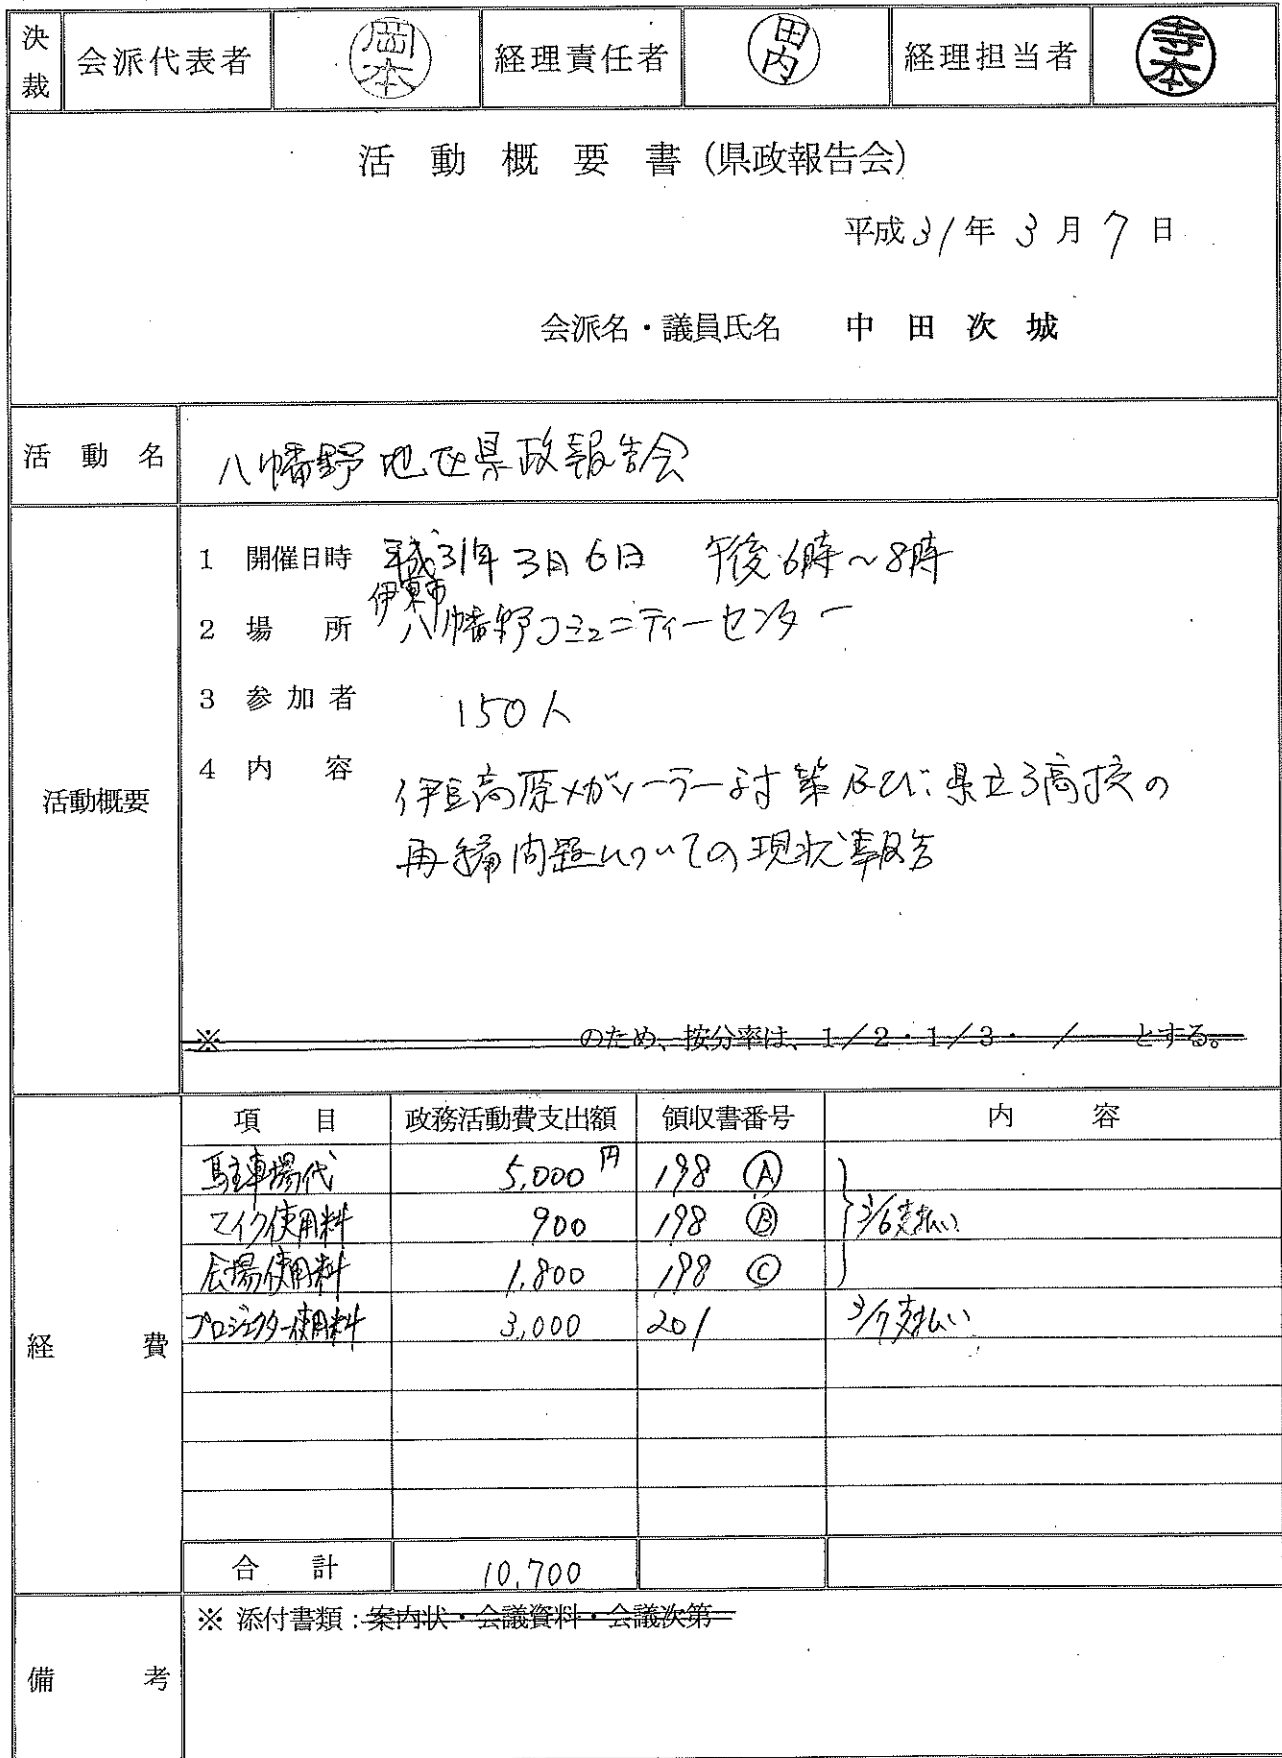 決裁 会派代表者 岡本 経理責任者 田内 経理担当者 寺本
活動概要書(県政報告会)
平成31年3月7日
会派名・議員氏名 中田次城
活動名 八幡野地区県政報告会
活動概要
1 開催日時 平成31年3月6日 午後6時~8時
2 場所 伊東市八幡野コミュニティーセンター
3 参加者 150人
4 内容 伊豆高原メガソーラー対策及び県立3高校の
再編問題についての現状報告
※ のため、按分率は、1/2・1/3・ / とする。
経費
項目 政務活動費支出額 領収書番号 内容
駐車場代 5,000円 198 Ⓐ
マイク使用料 900 198 Ⓑ 3/6支払い
会場使用料 1,800 198 Ⓒ
プロジェクター使用料 3,000 201 3/7支払い
合計 10,700
備考 ※ 添付書類:案内状・会議資料・会議次第